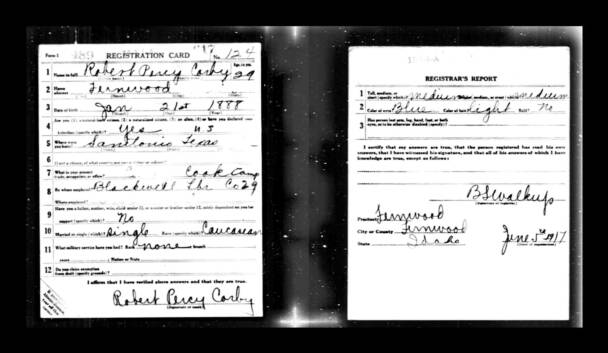 Form 1 REGISTRATION CARD No. 124
1 Name in full Robert Percy Corby Age, in yrs. 29
2 Home address Fernwood
3 Date of birth Jan 21st 1888
4 Are you (1) a natural-born citizen, (2) a naturalized citizen, (3) an alien, (4) or have you declared your
intention (specify which)? Yes U S
5 Where were you born? Sanitonio Texas
6 If not a citizen, of what country are you a citizen or subject?
7 What is your present trade, occupation, or office? Cook Camp
8 By whom employed? Blackwell Lbr. Co
Where employed?
9 Have you a father, mother, wife, child under 12, or a sister or brother under 12, solely dependent on you for
support (specify which)? No
10 Married or single (which)? Single Race (specify which)? Caucasean
11 What military service have you had? Rank none branch
years Nation or State
12 Do you claim exemption from draft (specify grounds)?
I affirm that I have verified above answers and that they are true.
Robert Percy Corby
REGISTRAR'S REPORT
1 Tall, medium, or short (specify which)? medium Slender, medium, or stout (which)? medium
2 Color of eyes Blue Color of hair Light Bald? No
3 Has person lost arm, leg, hand, foot, or both eyes, or is he otherwise disabled (specify)?
I certify that my answers are true, that the person registered has read his own
answers, that I have witnessed his signature, and that all of his answers of which I have
knowledge are true, except as follows:
B S Walkup
Precinct Fernwood
City or County Fernwood
State Idaho
June 5th 1917